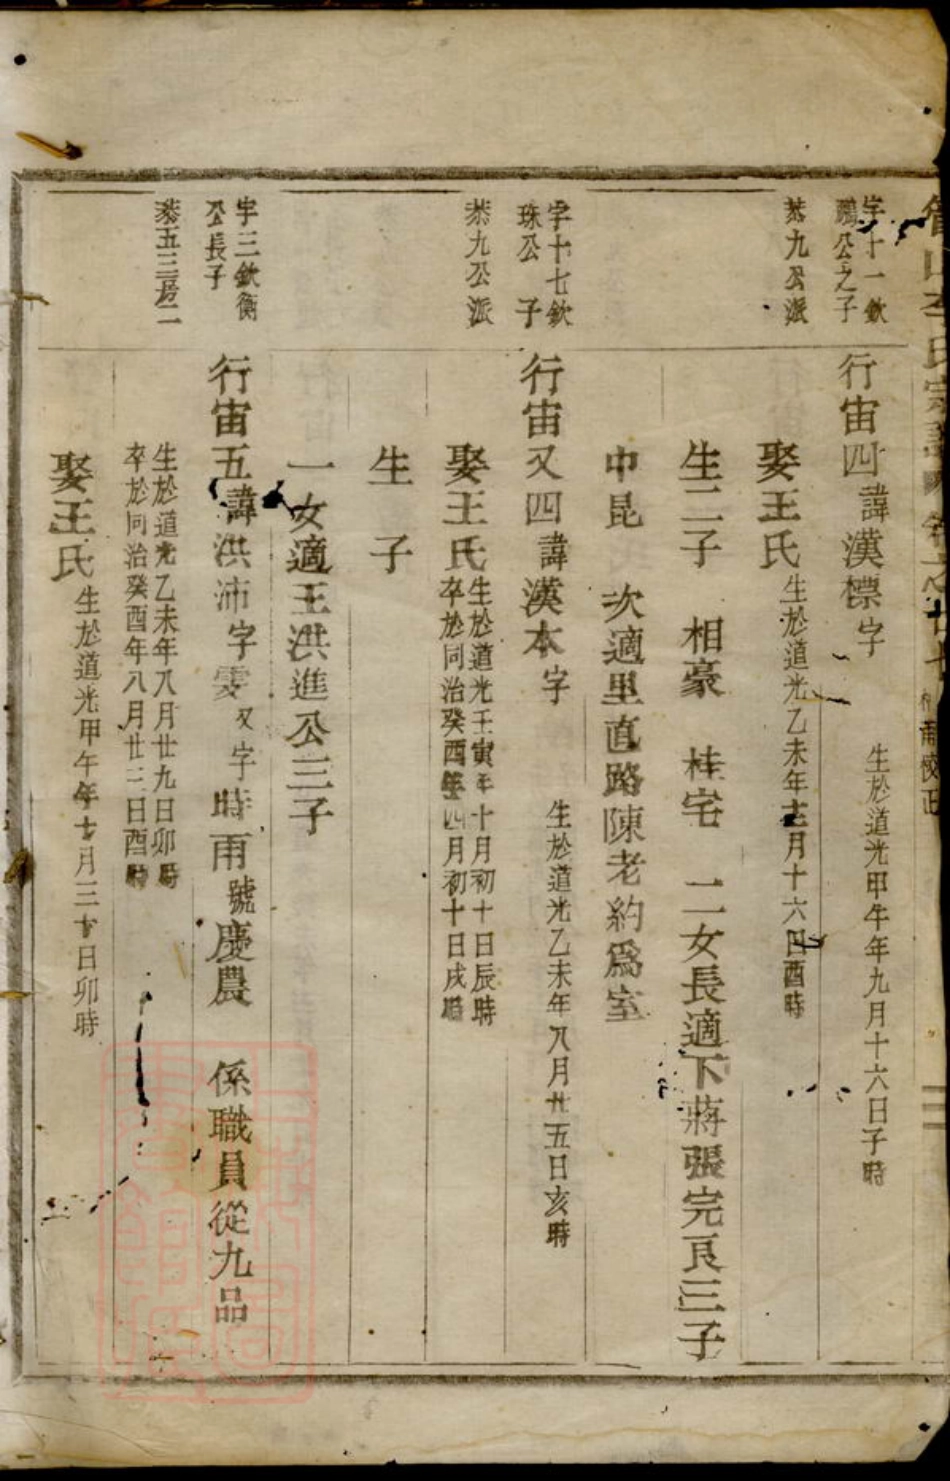 李氏宗譜
甫校正
字十一欽
鵬公之子
行宙四諱漢標字
生於道光甲午年九月十六日子時
恭九公派
娶王氏生於道光乙未年十二月十六日酉時
生二子 相豪 桂宅 二女長適下蔣張完良三子
中昆 次適里直路陳老約爲室
字十七欽
珠公 子
行宙又四諱漢本字
生於道光乙未年八月廿五日亥時
恭九公派
娶王氏
生於道光壬寅年十月初十日辰時
卒於同治癸酉年四月初十日戌時
生 子
一女適王洪進公三子
字三欽衡
公長子
行宙五諱洪沛字雯又字時雨號慶農 係職員從九品
恭五三房二
生於道光乙未年八月廿九日卯時
卒於同治癸酉年八月廿二日酉時
娶王氏生於道光甲午年十月三十日卯時